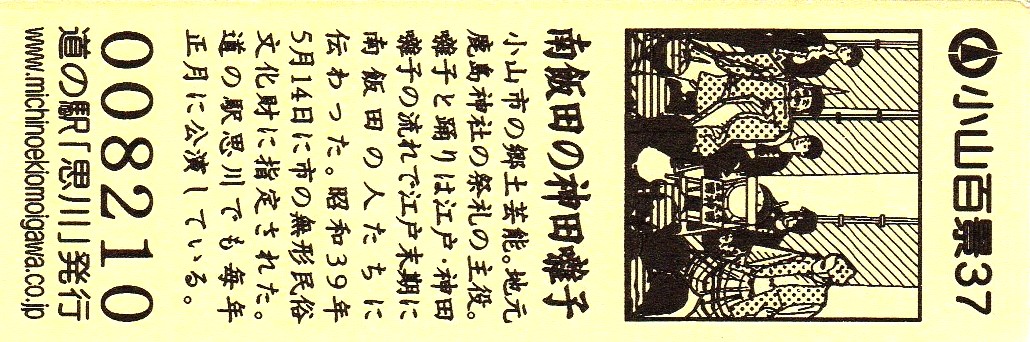 小山百景37
南飯田の神田囃子
小山市の郷土芸能。地元
鹿島神社の祭礼の主役。
囃子と踊りは江戸・神田
囃子の流れで江戸末期に
南飯田の人たちに
伝わった。昭和39年
5月14日に市の無形民俗
文化財に指定された。
道の駅思川でも毎年
正月に公演している。
008210
道の駅「思川」発行
www.michinoekiomoigawa.co.jp